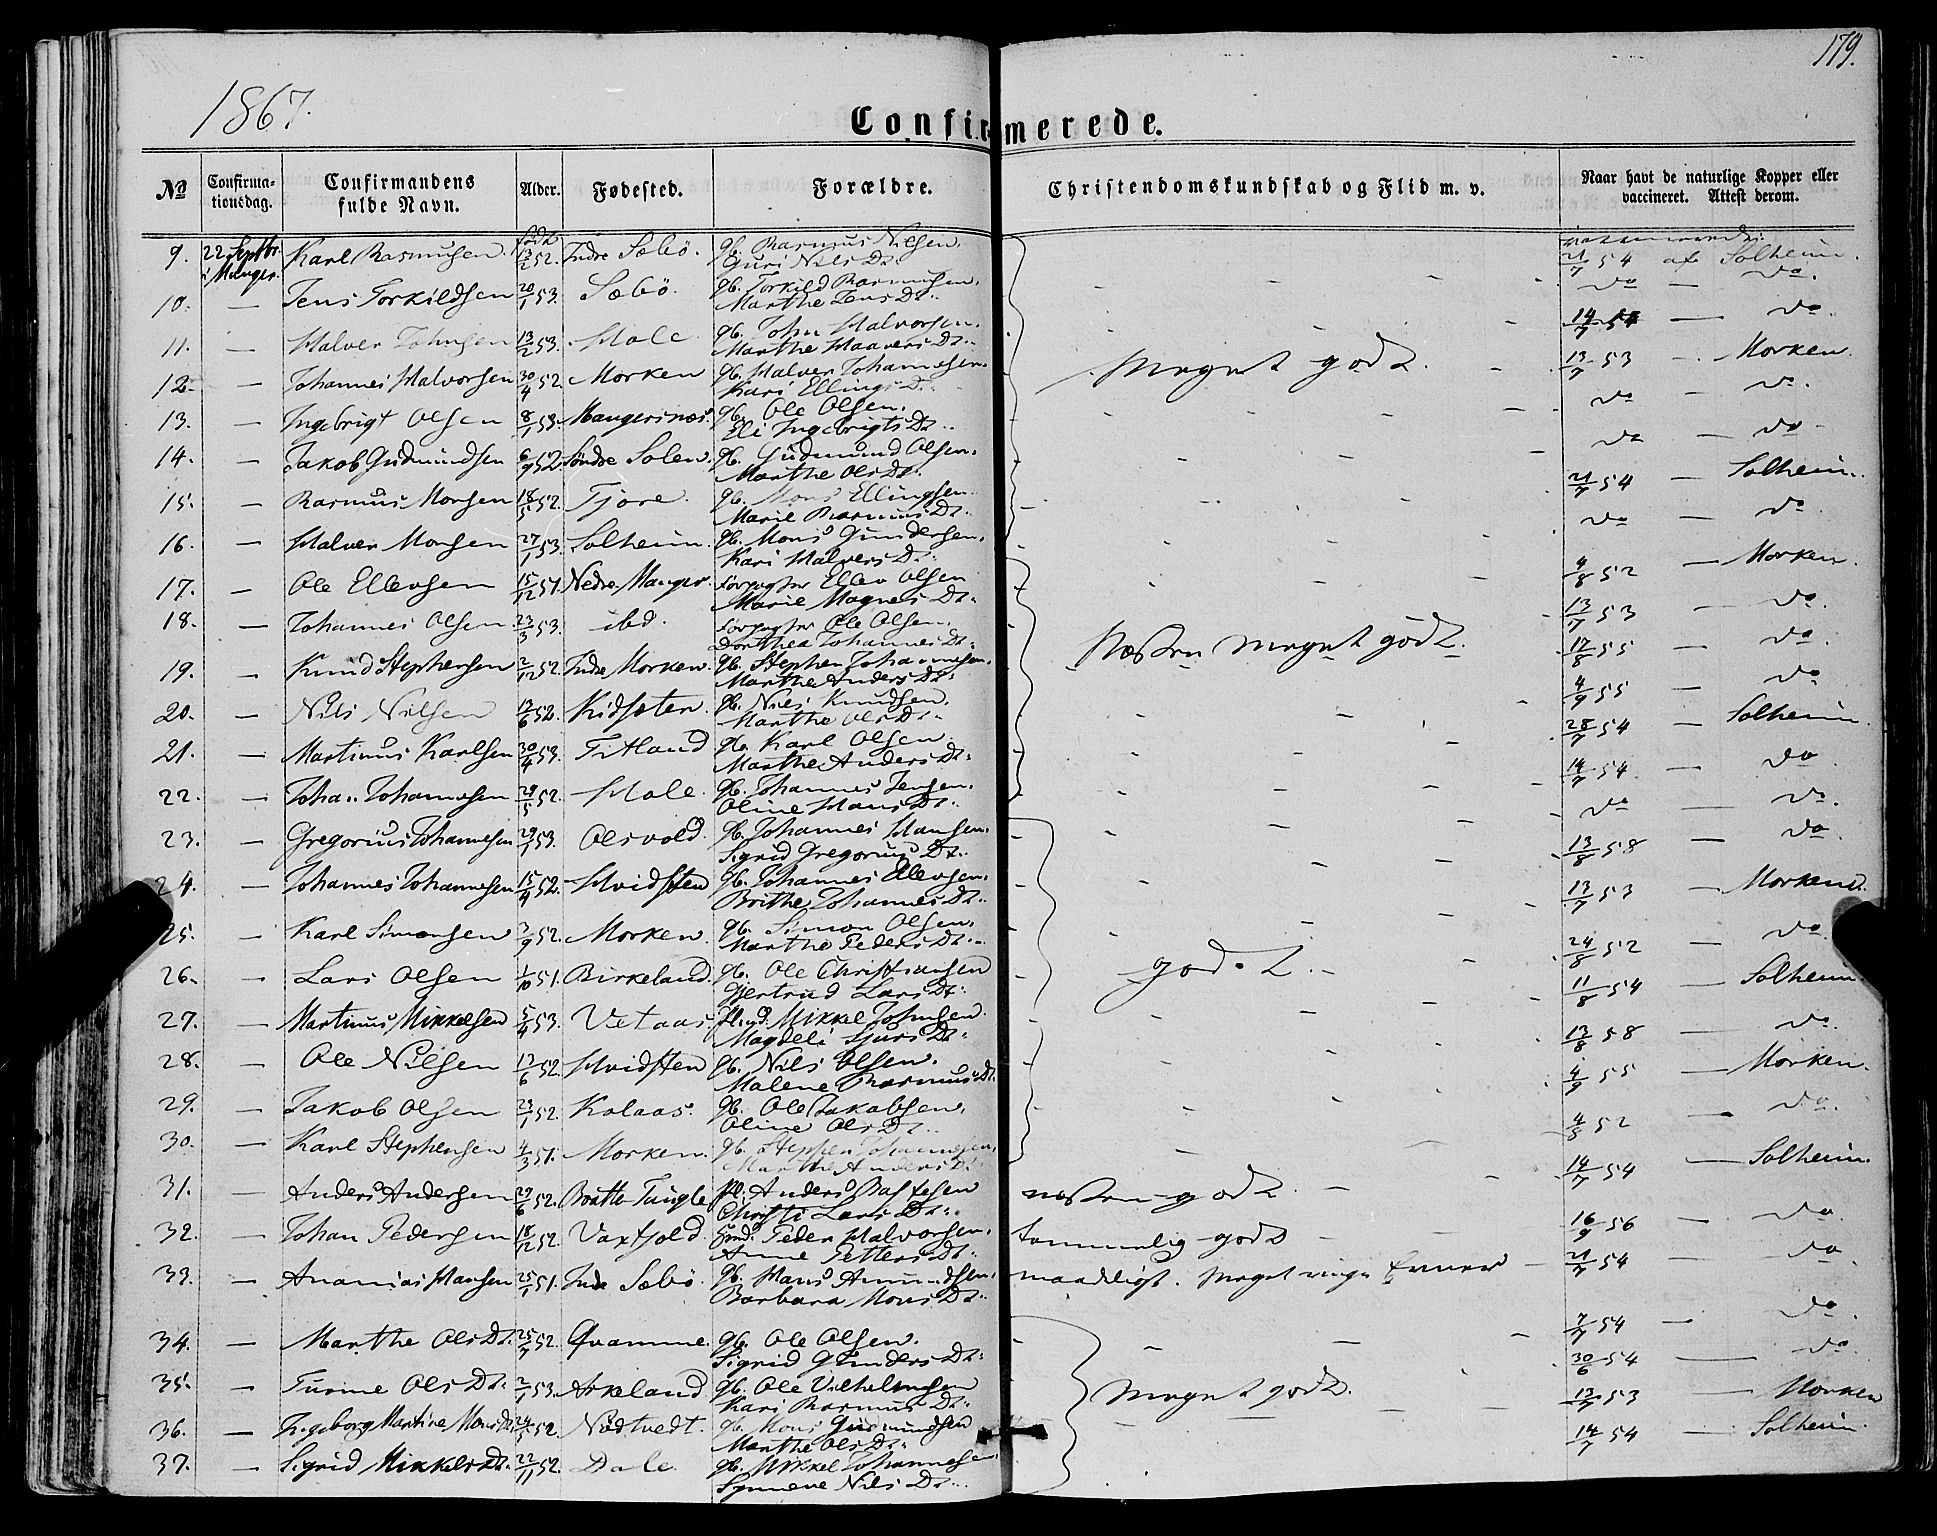 179.
1867.
Confirmerede.
No Confirmationsdag. Confirmandens fulde Navn. Alder. Fødested. Forældre. Christendomskundskab og Flid m. v. Naar havt de naturlige Kopper eller vaccineret. Attest derom.
9. 22 Septbr. i Manger. Karl Rasmusen født 52. Indre Sæbö. gb. Rasmus Nilsen Guri Nils Dt. 21/7 54 af Solheim.
10. — Jens Torkildsen 20/1 53. Sæbö. gb. Torkild Rasmusen. Marthe Jens Dt. do — do.
11. — Halver Johnsen 13/2 53. Hole gb. John Halvorsen. Marthe Haavers Dt. 14/7 54 — do.
12. — Johannes Halvorsen 30/4 52 Morken gb. Halver Johannesen. Kari Ellings D. Meget godt. 13/7 53 — Morken.
13. — Ingebrigt Olsen 8/1 53. Mangersnæs. gb. Ole Olsen. Eli Ingebrigts Dt. do — do.
14. — Jakob Gudmundsen 6/9 52. Söndre Solem. gb. Gudmund Olsen. Marthe Ols Dt. do — do
15. — Rasmus Monsen 18/5 52. Tjore. gb. Mons Ellingsen. Marie Rasmus Dt. 21/7 54 — Solheim.
16. — Halver Monsen 27/1 53. Solheim. gb. Mons Gundersen. Kari Halvers Dt. do — do.
17. — Ole Ellevsen 15/12 51. Nedre Manger. Forpagter Ellev Olsen Marie Magnes Dt. 4/8 52 — Morken.
18. — Johannes Olsen. 23/3 53. ibd. Forpagter Ole Olsen. Dorthea Johannes Dt. 13/7 53 — do.
19. — Knud Stephensen 2/12 52. Indre Morken. gb. Stephen Johannesen. Marthe Anders Dt. Næsten meget godt. 17/8 55 — do.
20. — Nils Nilsen 52. Kidsæten. gb. Nils Knudsen. Marthe Ols Dt. 4/9 55 — do
21. — Martinus Karlsen 30/4 53. Titland gb. Karl Olsen. Marthe Anders Dt. 28/7 54 — Solheim.
22. — Johan Johannesen 29/5 52. Hole. gb. Johannes Jensen. Oline Hans Dt. 14/7 54 — do
23. — Gregorius Johannesen 29/1 53. Olsvold. gb. Johannes Hansen. Sigrid Gregorius Dt. do — do.
24. — Johannes Johannesen 15/4 52. Hvidsten gb. Johannes Ellevsen. Brithe Johannes Dt. 13/8 58 — do
25. — Karl Simonsen 3/9 52. Morken. gb. Simon Olsen. Marthe Peders Dt. 13/7 53 — Morken.
26. — Lars Olsen 1/10 51. Birkeland. gb. Ole Christiansen Gjertrud Lars Dt. godt. 24/8 52 — do
27. — Martinus Mikkelsen 5/4 53. Vetaas. Mikkel Johnsen. Magdeli Sjurs Dt. 11/8 54 — Solheim
28. — Ole Nilsen 52. Hvidsten gb. Nils Olsen. Malene Rasmus Dt. 13/8 58 — do.
29. — Jakob Olsen 23/1 52. Kolaas. gb. Ole Jakobsen. Oline Ols Dt. 4/9 55 — Morken.
30. — Karl Stephensen 4/3 51. Morken. gb. Stephen Johannesen. Marthe Anders Dt. 52 — do.
31. — Anders Andersen 29/6 52. Anders Bastesen Christi Lars Dt. næsten godt. 14/7 54 — Solheim.
32. — Johan Pedersen 18/12 52. Vaxfjold. Peder Halvorsen. Anne Petters Dt. temmelig godt 16/9 56 — do
33. — Ananias Hansen 25/1 51. Indre Sæbö. gb. Hans Amundsen. Barbara Mons Dt. maadeligt. Meget ringe Evner 21/7 54 — do
34. — Marthe Ols Dt. 25/7 52. Qvamme. gb. Ole Olsen. Sigrid Gunders Dt. 7/7 54 — do.
35. — Turine Ols Dt. 2/1 53. Askeland gb. Ole Vilhelmsen Kari Rasmus Dt. Meget godt. 30/6 54 — do.
36. — Ingeborg Martine Mons Dt. 52. Nödtvedt. gb. Mons Gudmundsen Marthe Ols Dt. 13/7 53 — Morken
37. — Sigrid Mikkels Dt. 22/11 52. Dale. gb. Mikkel Johannesen. Synneve Nils Dt. 14/7 54 — Solheim.